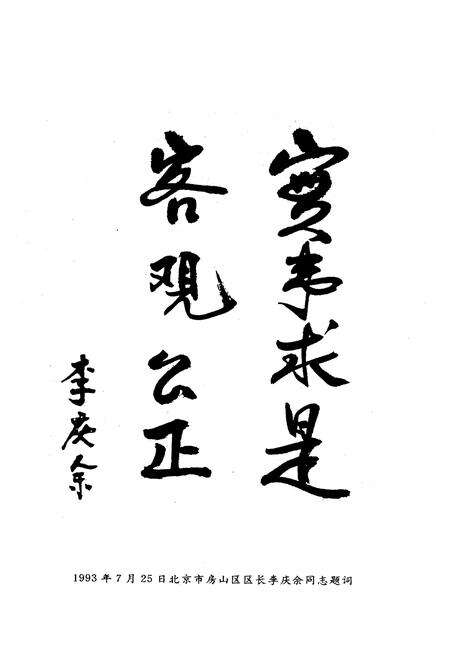 實事求是
客观公正
李庆余
1993年7月25日北京市房山区区长李庆余同志题词